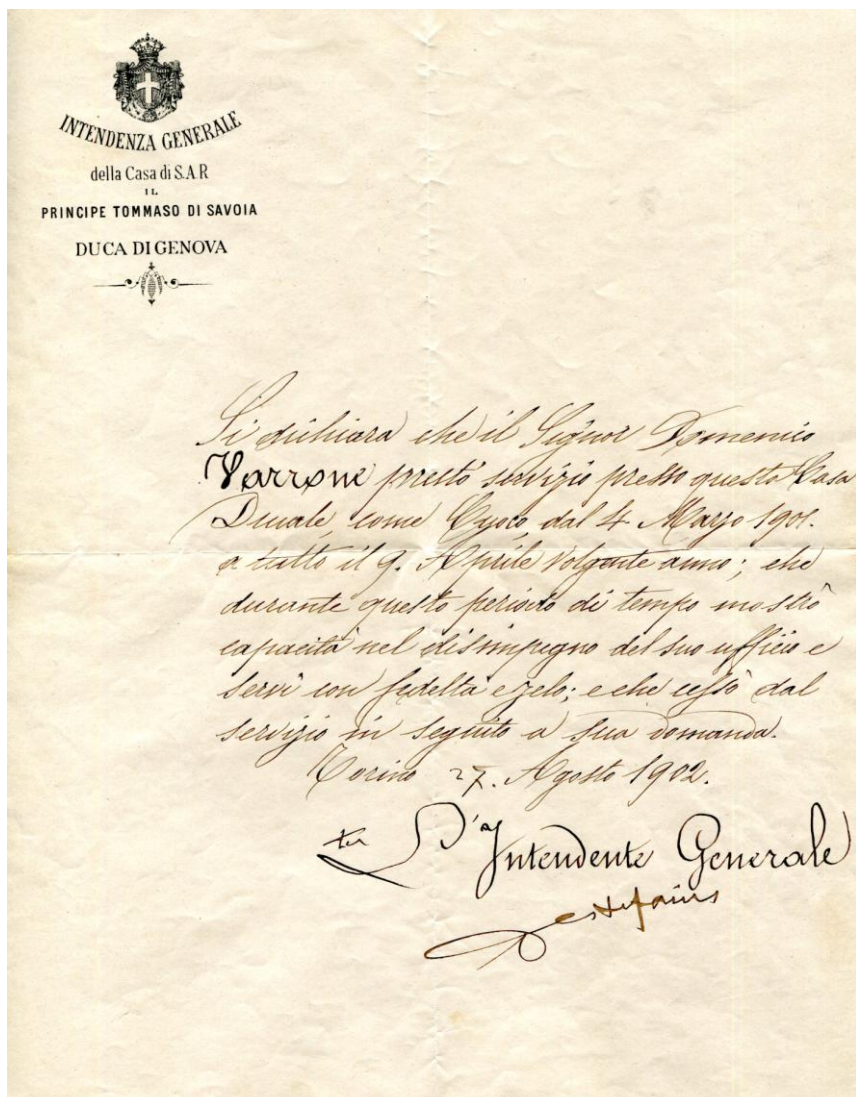 INTENDENZA GENERALE
della Casa di S.A.R
IL
PRINCIPE TOMMASO DI SAVOIA
DUCA DI GENOVA
Si dichiara che il Signor Domenico
Varrone prestò servizio presso questa Casa
Ducale, come Cuoco, dal 4 Marzo 1901.
a tutto il 9. Aprile volgente anno; che
durante questo periodo di tempo mostrò
capacità nel disimpegno del suo ufficio e
servì con fedeltà e zelo; e che cessò dal
servizio in seguito a sua domanda.
Torino 27. Agosto 1902.
L'Intendente Generale